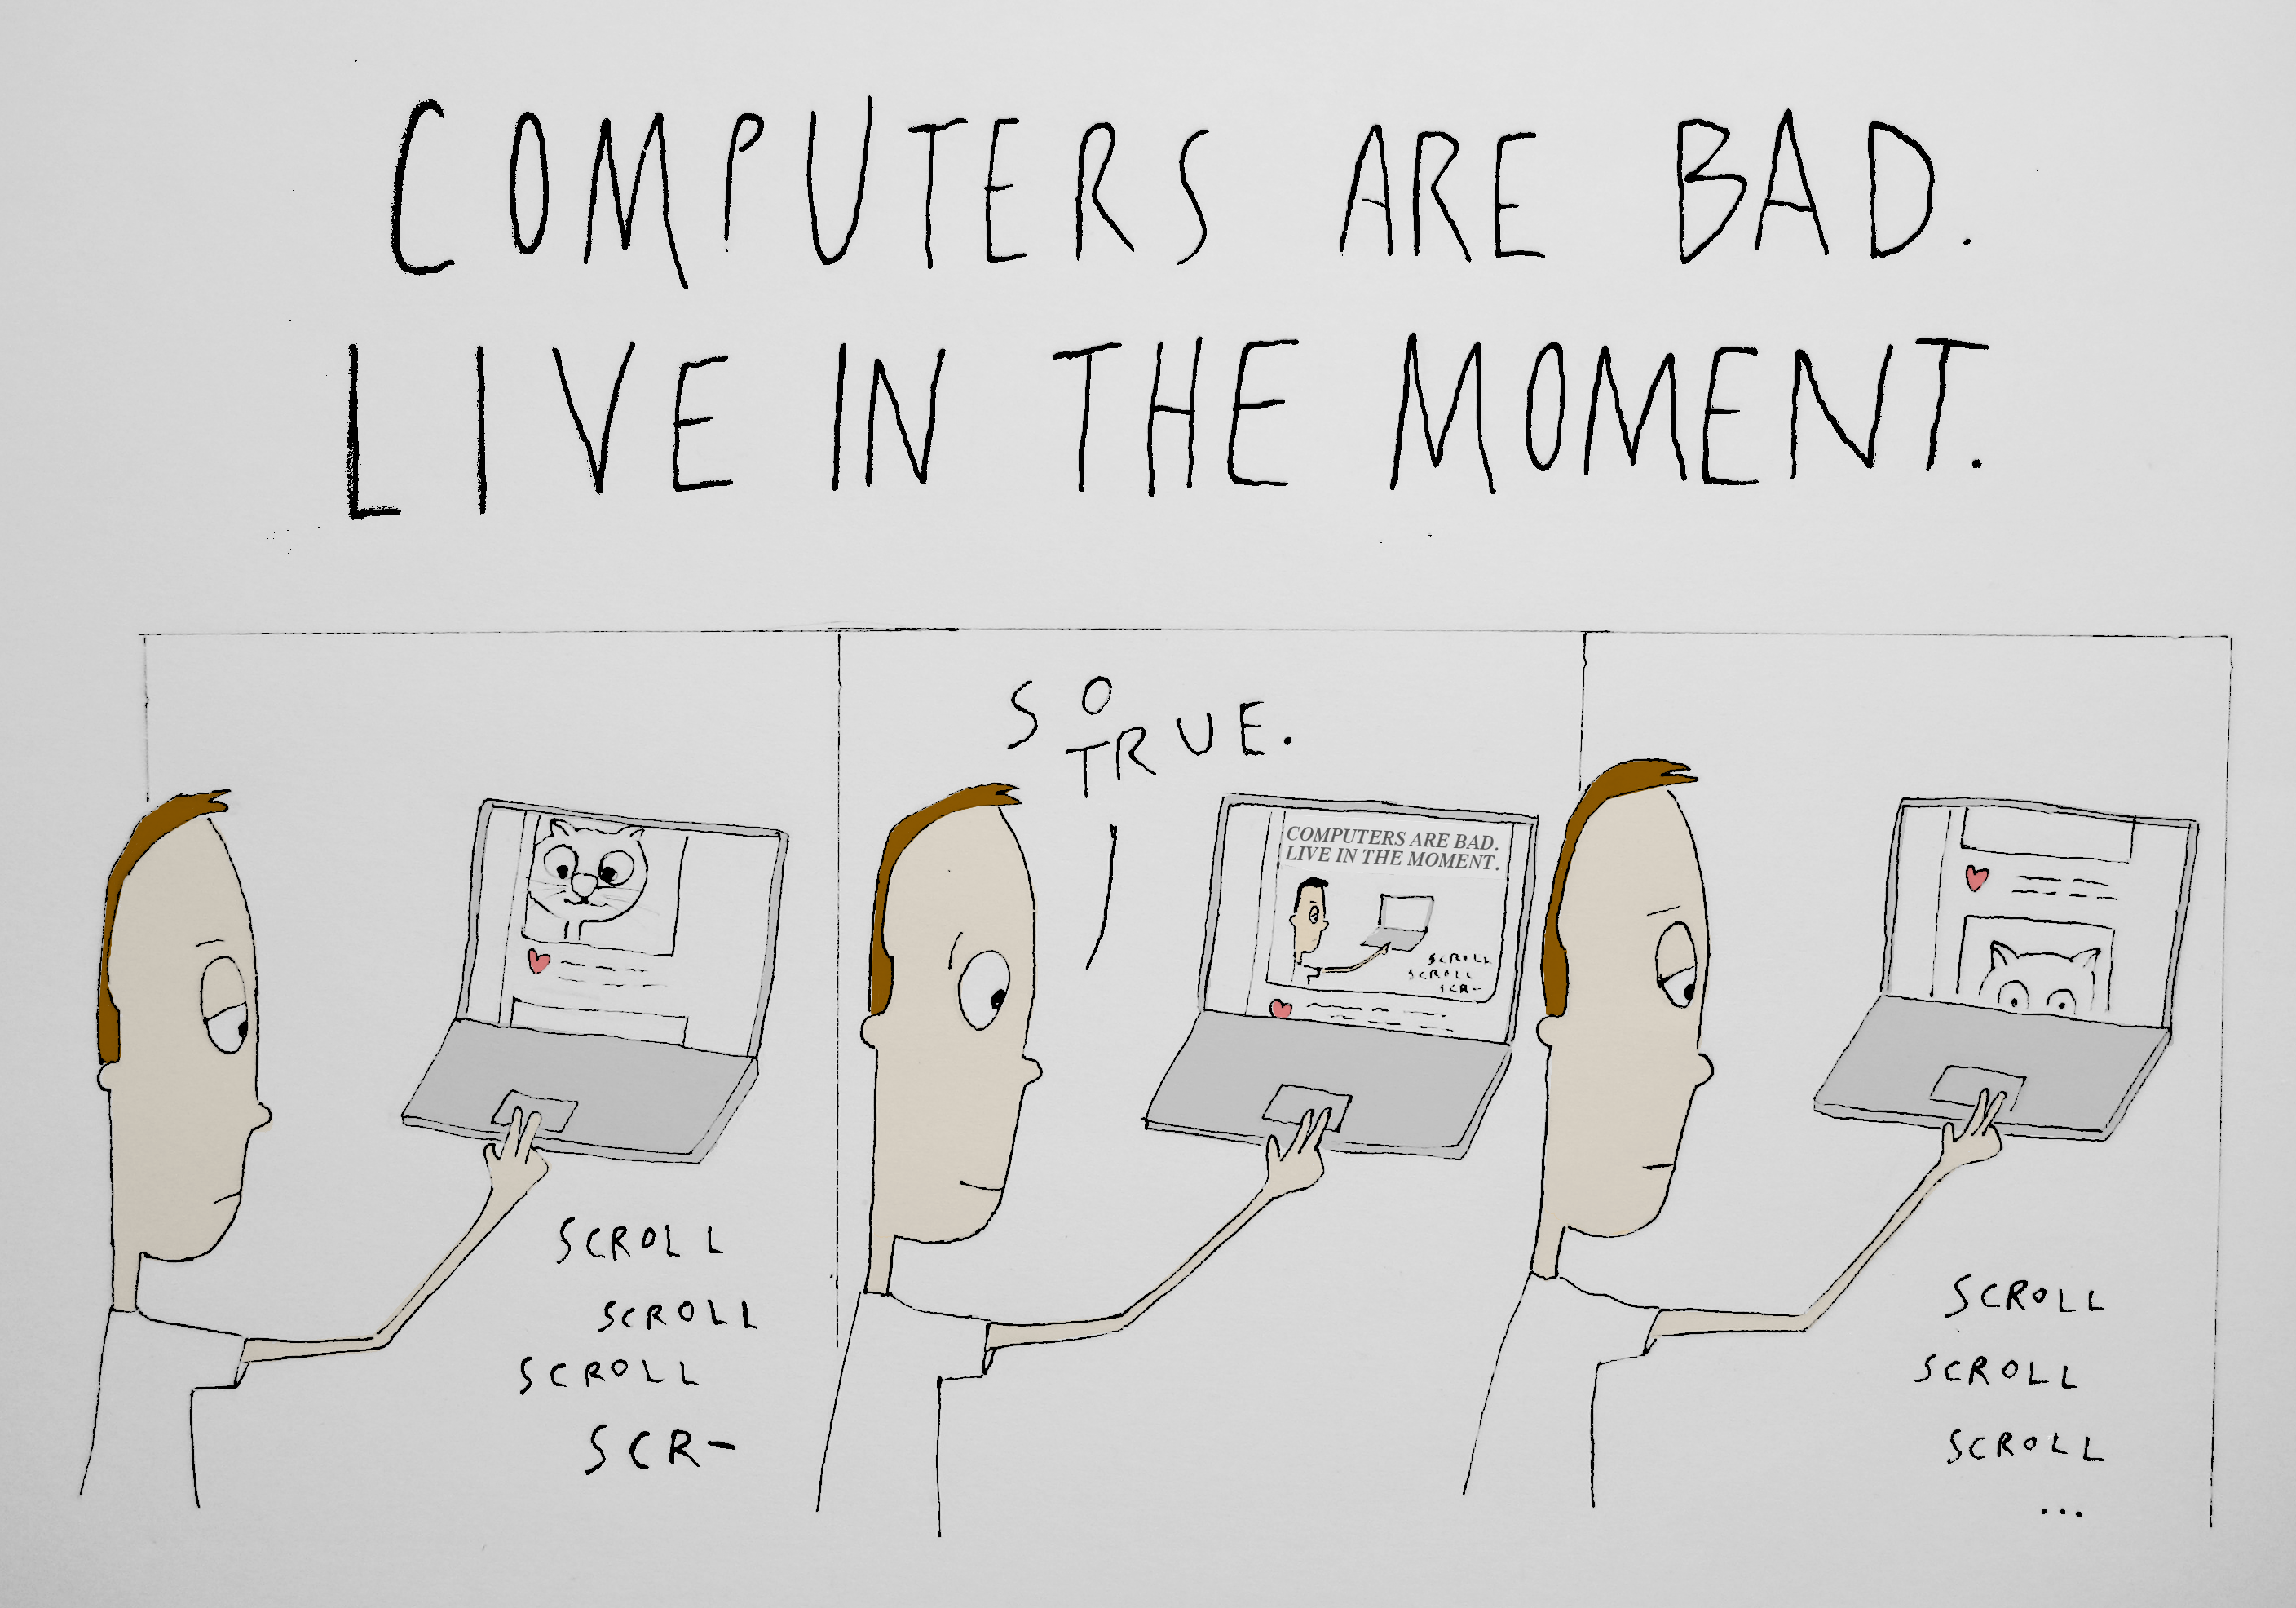 COMPUTERS ARE BAD.
LIVE IN THE MOMENT.
SCROLL
SCROLL
SCROLL
SCR-
SO
TRUE.
COMPUTERS ARE BAD.
LIVE IN THE MOMENT.
SCROLL
SCROLL
SCR-
SCROLL
SCROLL
SCROLL
...